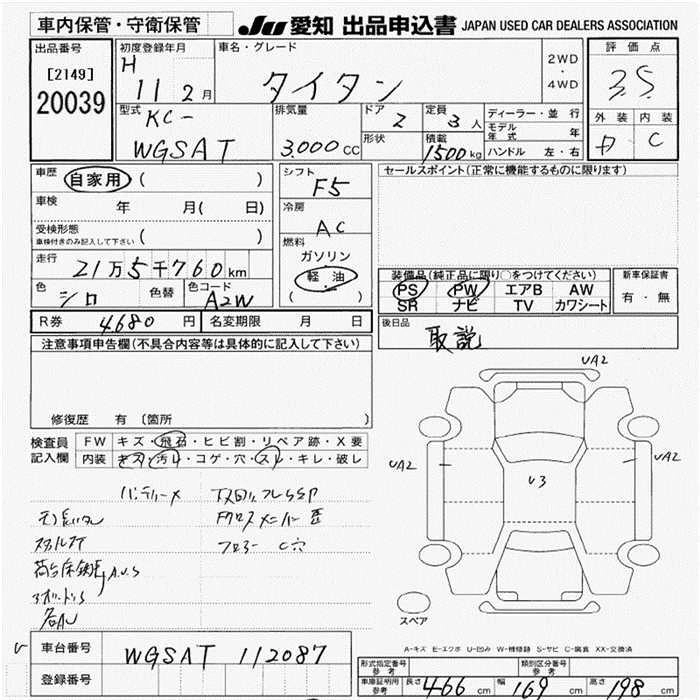 車内保管・守衛保管
JU 愛知 出品申込書 JAPAN USED CAR DEALERS ASSOCIATION
出品番号
[2149]
20039
初度登録年月
H 11 2月
車名・グレード
タイタン
2WD
・
4WD
評価点
3.5
外装 内装
C
型式
KC-
WGSAT
排気量
3.000CC
ドア 2
形状
定員 3人
積載 1500kg
ディーラー・並行
モデル年式 年
ハンドル 左・右
車歴
自家用 ( )
車検 年 月( 日)
受検形態
車検付きのみ記入して下さい ( )
走行
21万5千760km
色 シロ
色替
色コード A2W
シフト
F5
冷房
AC
燃料
ガソリン
軽油
( )
セールスポイント(正常に機能するものに限ります)
装備品(純正品に限り○をつけてください)
PS PW エアB AW
SR ナビ TV カワシート
新車保証書
有・無
R券 4680円
名変期限 月 日
後日品
取説
注意事項申告欄(不具合内容等は具体的に記入して下さい)
修復歴 有 〔箇所 〕
検査員記入欄
FW キズ・飛石・ヒビ割・リペア跡・X要
内装 キズ・汚レ・コゲ・穴・スレ・キレ・破レ
バッテリーメ
フロアー C穴
UA2
UA2
U3
UA2
スペア
A-キズ E-エクボ U-凹み W-補修跡 S-サビ C-腐食 XX-交換済
車台番号
WGSAT 112087
登録番号
形式指定番号 参考
類別区分番号 参考
車庫証明用 参考 長さ 466 cm 幅 169 cm 高さ 198 cm